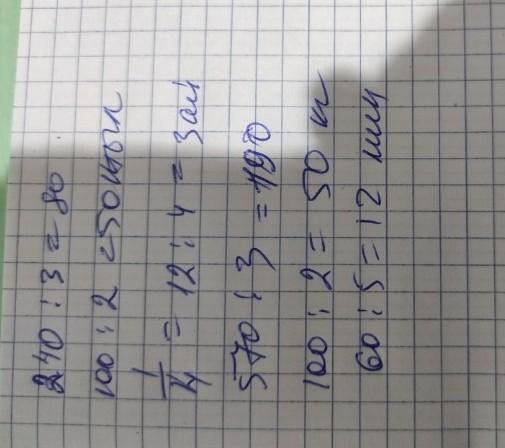 240 : 3 = 80
100 : 2 = 50 жыл
1/4 = 12 : 4 = 3 ай
570 : 3 = 190
100 : 2 = 50 кг
60 : 5 = 12 мин